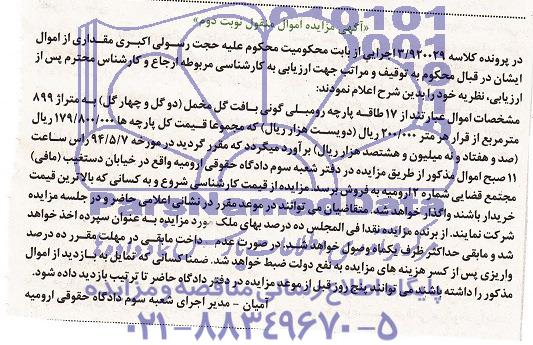 «آگهی مزایده اموال منقول نوبت دوم»
در پرونده کلاسه ۳/۹۲۰۰۲۹ اجرایی از بابت محکومیت محکوم علیه حجت رسولی اکبری مقداری از اموال
ایشان در قبال محکوم به توقیف و مراتب جهت ارزیابی به کارشناسی مربوطه ارجاع و کارشناس محترم پس از
ارزیابی، نظریه خود را بدین شرح اعلام نمودند:
مشخصات اموال عبارتند از ۱۷ طاقه پارچه رومبلی گونی بافت گل مخمل (دو گل و چهار گل) به متراژ ۸۹۹
مترمربع از قرار هر متر ۲۰۰/۰۰۰ ریال (دویست هزار ریال) که مجموعا قیمت کل پارچه ها ۱۷۹/۸۰۰/۰۰۰ ریال
(صد و هفتاد و نه میلیون و هشتصد هزار ریال) برآورد میگردد که مقرر گردید در مورخه ۹۴/۵/۷ راس ساعت
۱۱ صبح اموال مذکور از طریق مزایده در دفتر شعبه سوم دادگاه حقوقی ارومیه واقع در خیابان دستغیب (مافی)
مجتمع قضایی شماره ۲ ارومیه به فروش برسد. مزایده از قیمت کارشناسی شروع و به کسانی که بالاترین قیمت
خریدار باشند واگذار خواهد شد. متقاضیان می توانند در موعد مقرر در نشانی اعلامی حاضر و در جلسه مزایده
شرکت نمایند. از برنده مزایده نقدا فی المجلس ده درصد بهای ملک مورد مزایده به عنوان سپرده اخذ خواهد
شد و مابقی حداکثر ظرف یکماه وصول خواهد شد. در صورت عدم پرداخت مابقی در مهلت مقرر ده درصد
واریزی پس از کسر هزینه های مزایده به نفع دولت ضبط خواهد شد. ضمنا کسانی که تمایل به بازدید از اموال
مذکور را داشته باشند می توانند پنج روز قبل از موعد مزایده در دفتر دادگاه حاضر تا ترتیب بازدید داده شود.
آمیان - مدیر اجرای شعبه سوم دادگاه حقوقی ارومیه
پایگاه اطلاع رسانی مناقصه و مزایده
۰۲۱-۸۸۳۴۹۶۷۰-۵